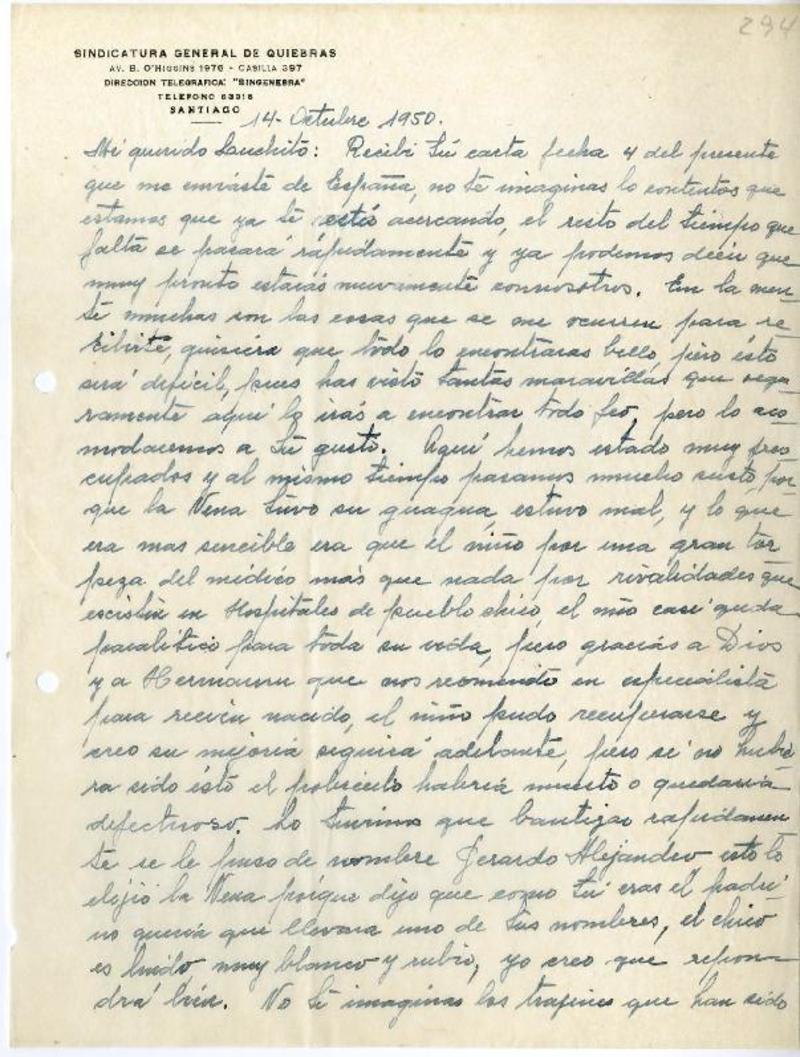 294
SINDICATURA GENERAL DE QUIEBRAS
AV. B. O'HIGGINS 1976 - CASILLA 397
DIRECCION TELEGRAFICA: "SINGENEBRA"
TELEFONO 83318
SANTIAGO
14- Octubre 1950.
Mi querido Lauchito: Recibi tú carta fecha 4 del presente
que me enviaste de España, no te imaginas lo contentos que
estamos que ya te está acercando, el resto del tiempo que
falta se pasará rápidamente y ya podemos decir que
muy pronto estarás nuevamente connosotros. En la men-
te muchas son las cosas que se me ocurren para re-
cibirte, quisiera que todo lo encontraras bello, pero ésto
será dificil, pues has visto tantas maravillas que segu-
ramente aquí lo irás a encontrar todo feo, pero lo aco-
modaremos a tú gusto. Aquí hemos estado muy preo
cupados y al mismo tiempo pasamos mucho susto, por-
que la Nena tuvo su guagua, estuvo mal, y lo que
era mas sencible era que el niño por una gran tor
peza del médico más que nada por rivalidades que
escistin en Hospitales de pueblo chico, el niño casi queda
paralitico para toda su vida, pero gracias a Dios
y a Hermann que nos recomendó en especialista
para recien nacido, el niño pudo recuperarse y
creo su mejoria seguirá adelante, pero si no hubie-
ra sido ésto el pobrecito habria muerto o quedaria
defectuoso. Lo tuvimos que bautizar rapidamen
te se le puso de nombre Gerardo Alejandro, esto lo
elejió la Nena porque dijo que como tú eras el padri-
no queria que llevara uno de tus nombres, el chico
es lindo muy blanco y rubio, yo creo que repon-
drá bien. No te imaginas los trajines que han sido